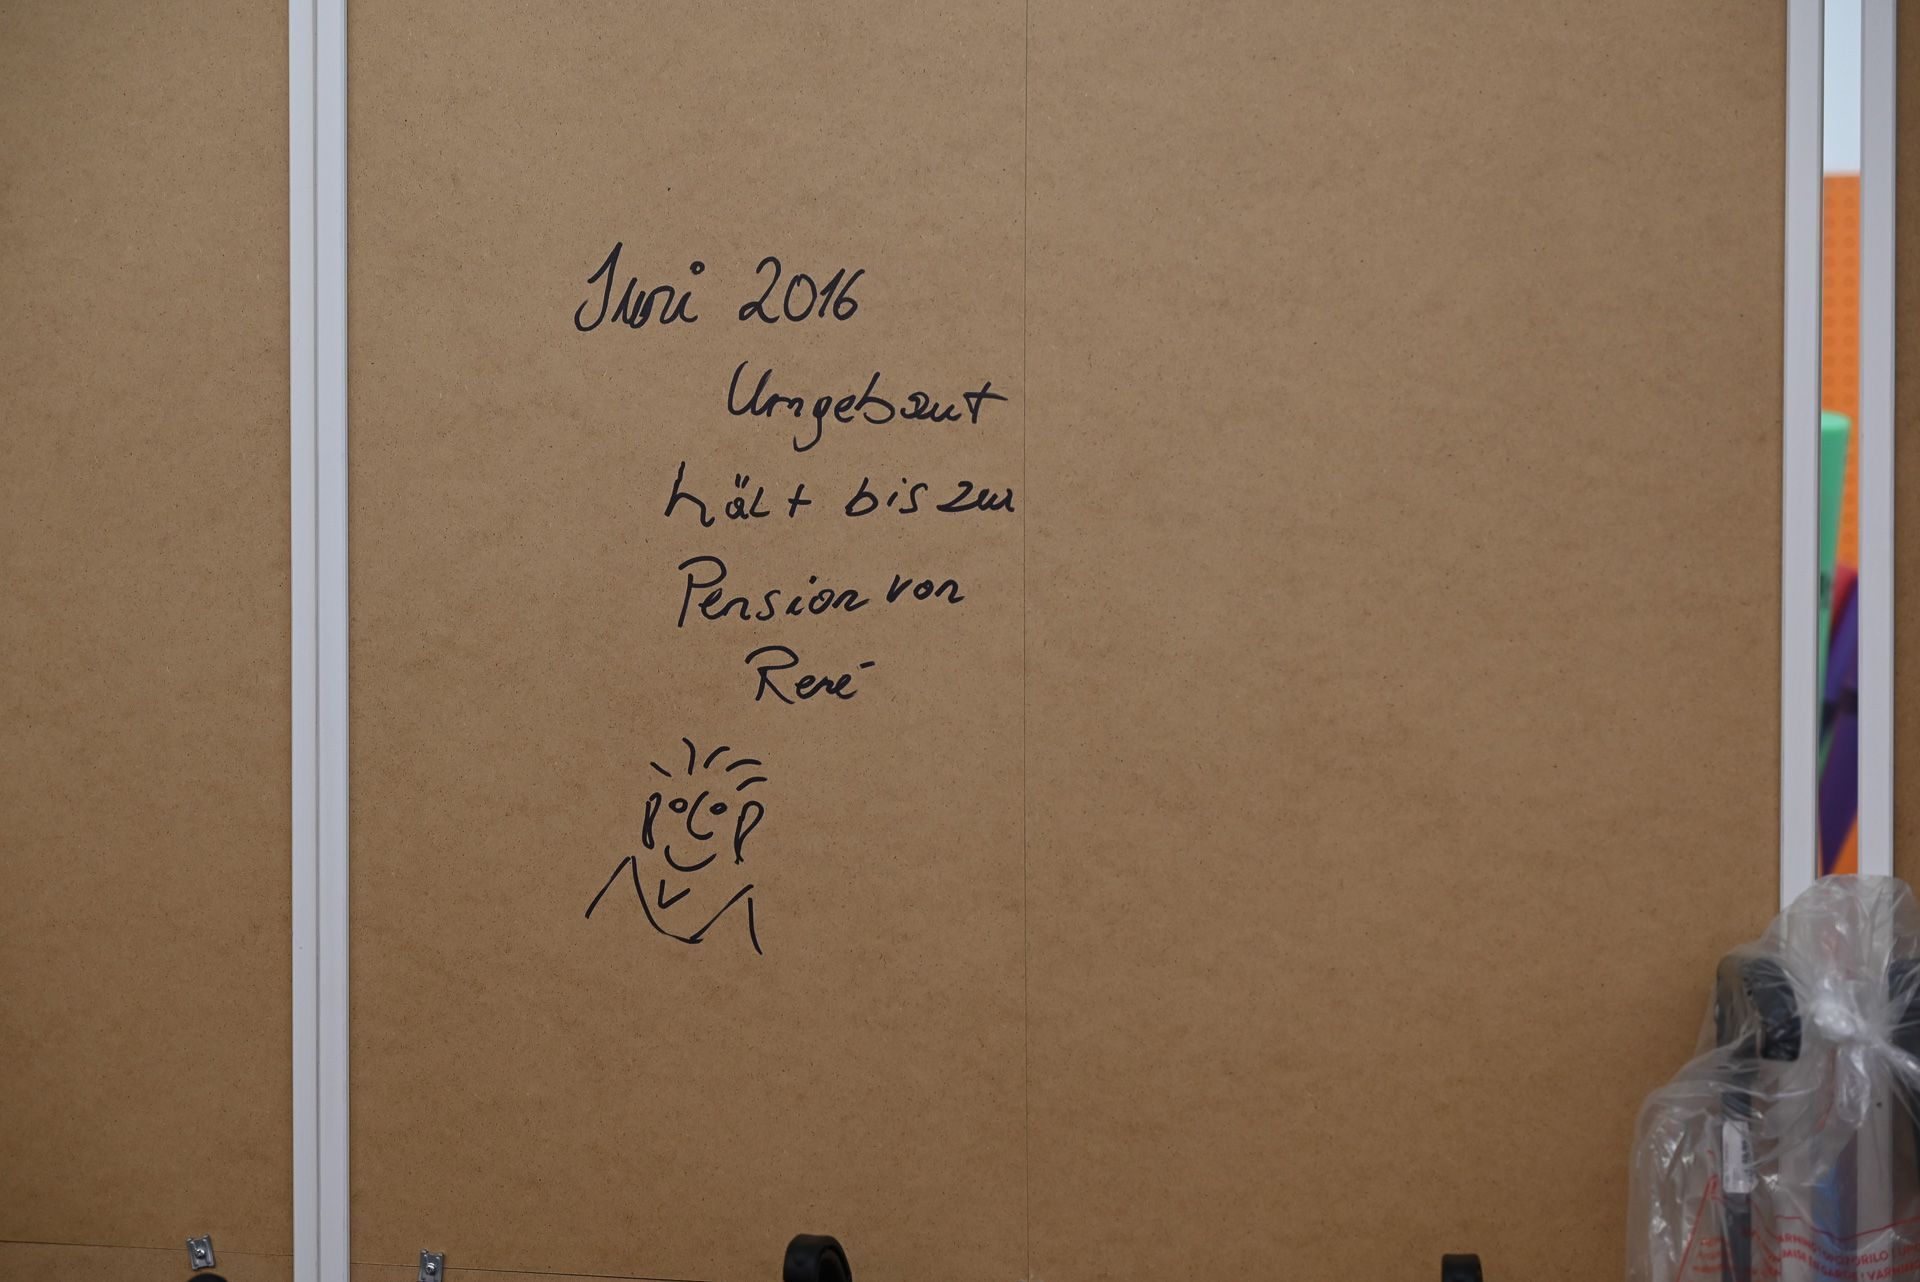 Juni 2016
Umgebaut
hält bis zur
Pension von
René